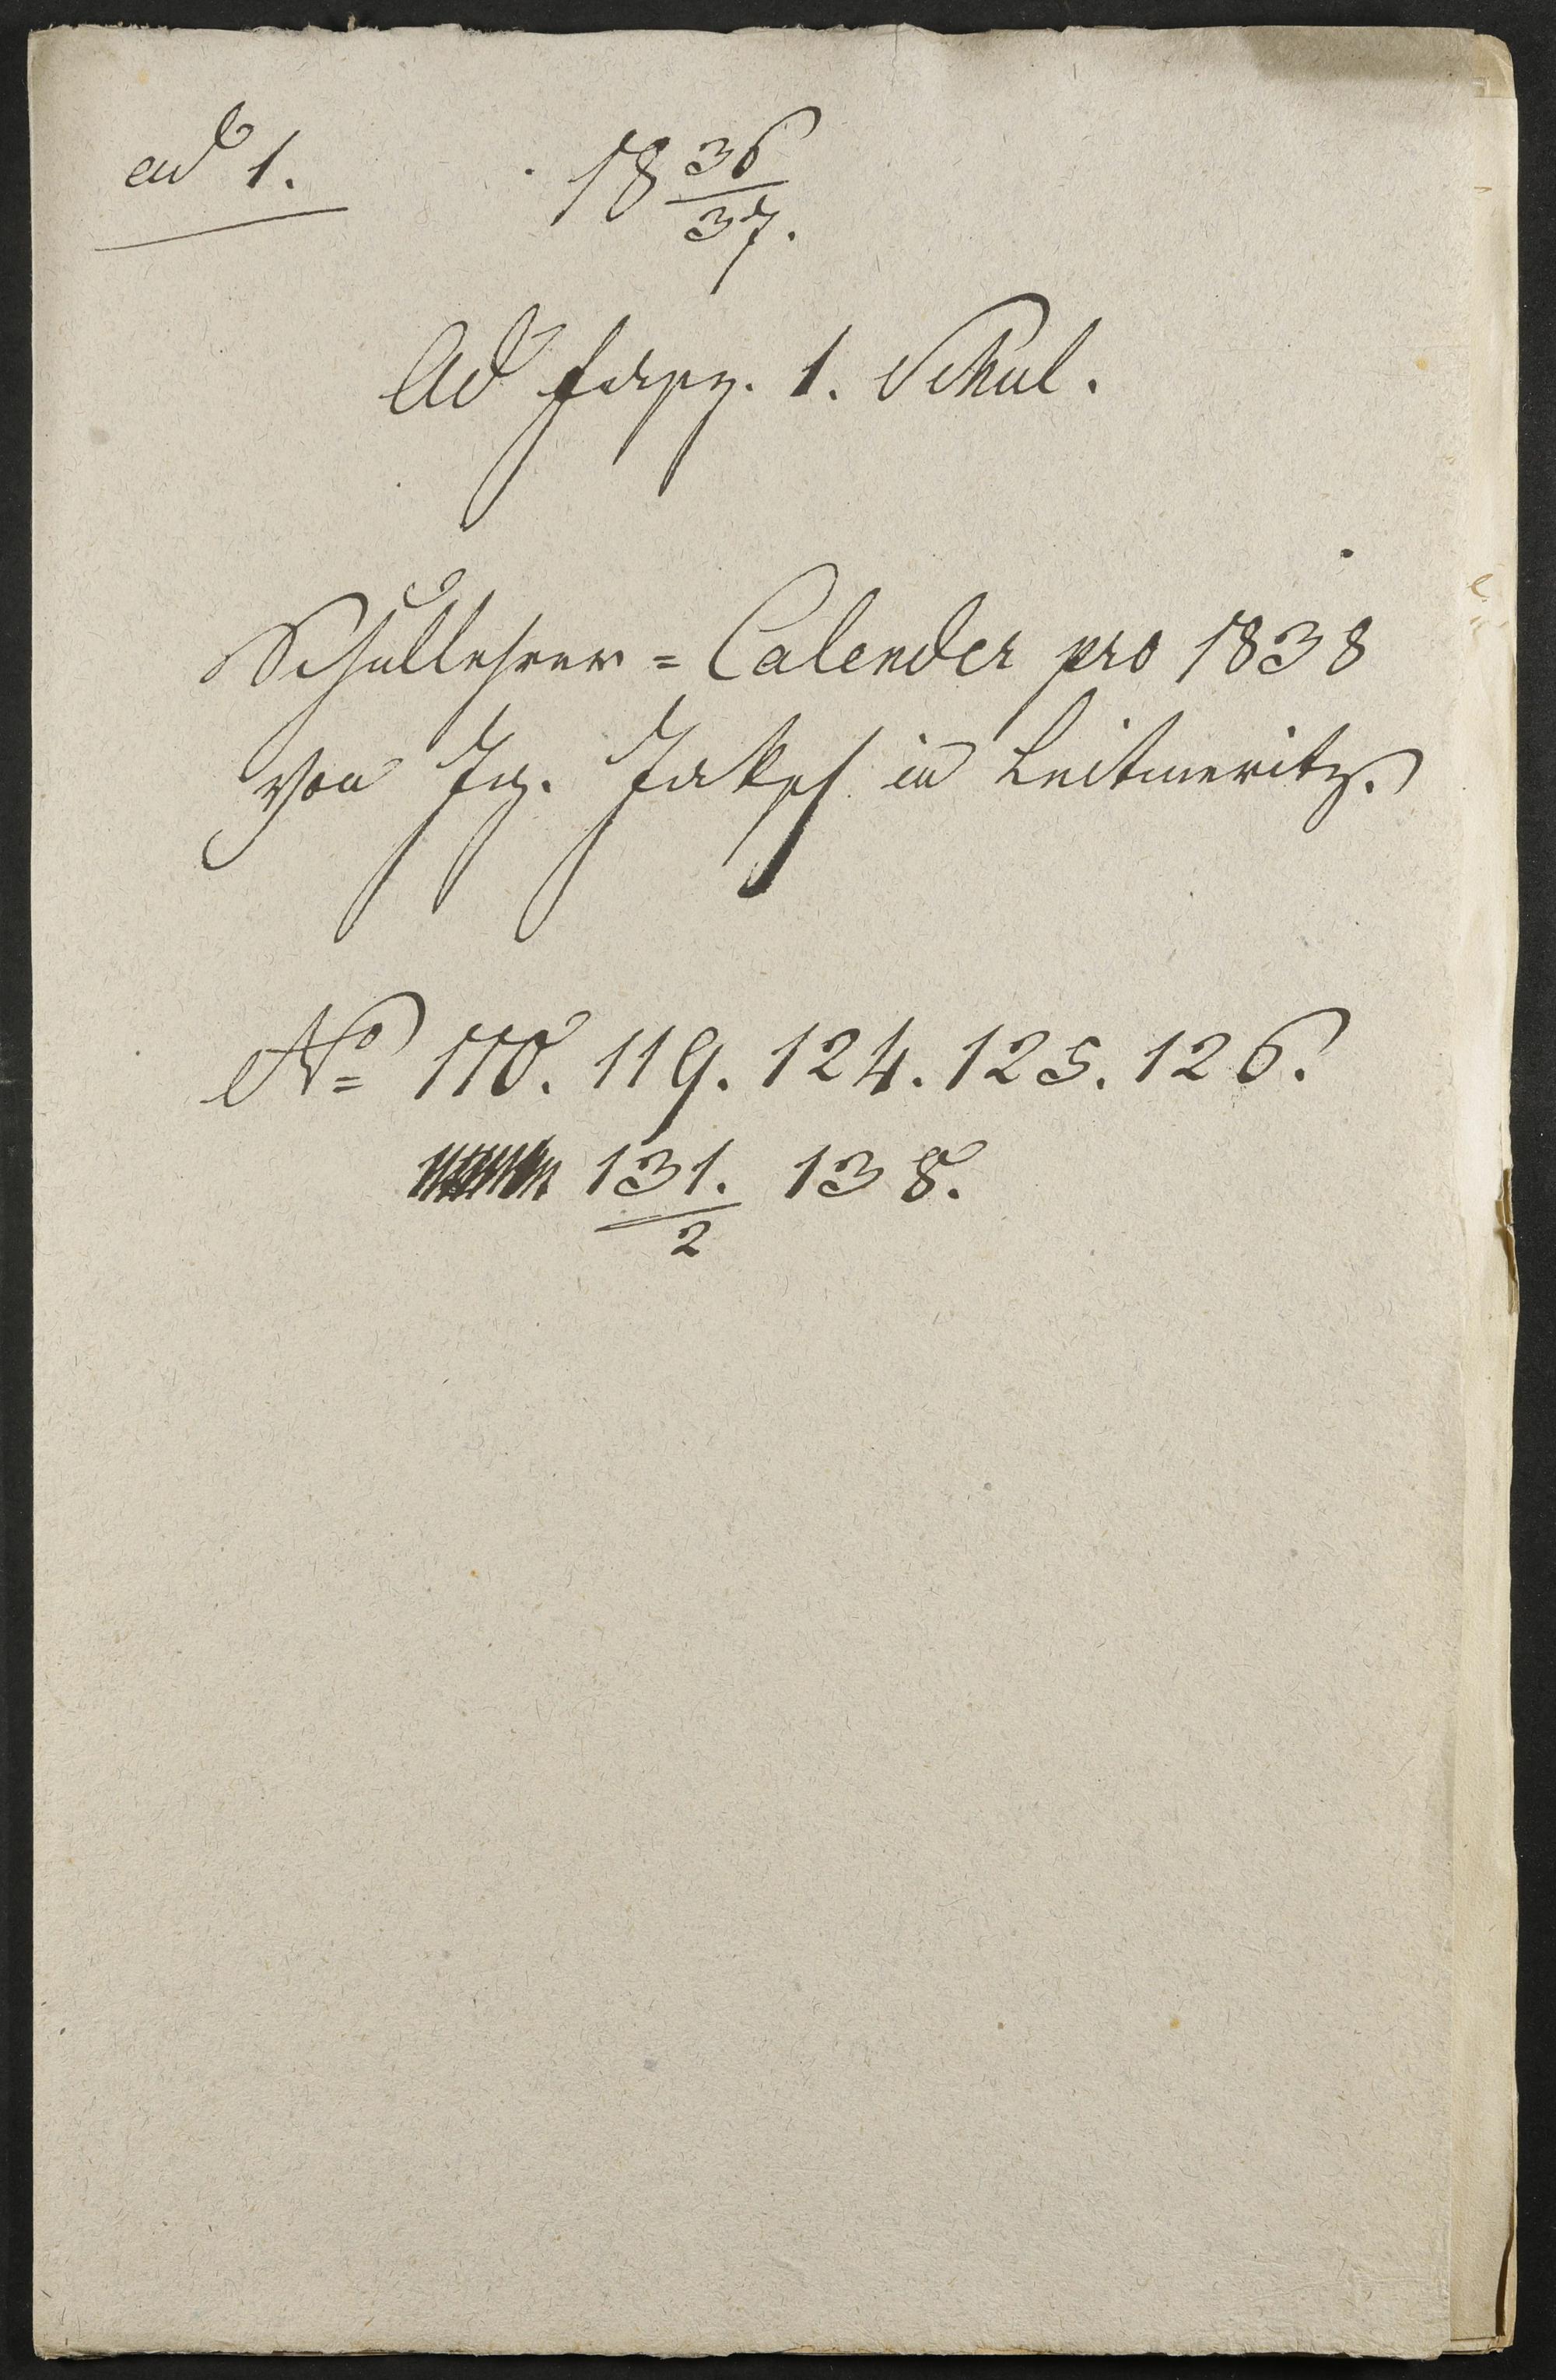 ad 1. 18 36/37.
Ad fasz. 1. Schul.
Schullehrer = Calender pro 1838
von Ig. Jaksch in Leitmeritz.
No 118. 119. 124. 125. 126.
131./2 138.